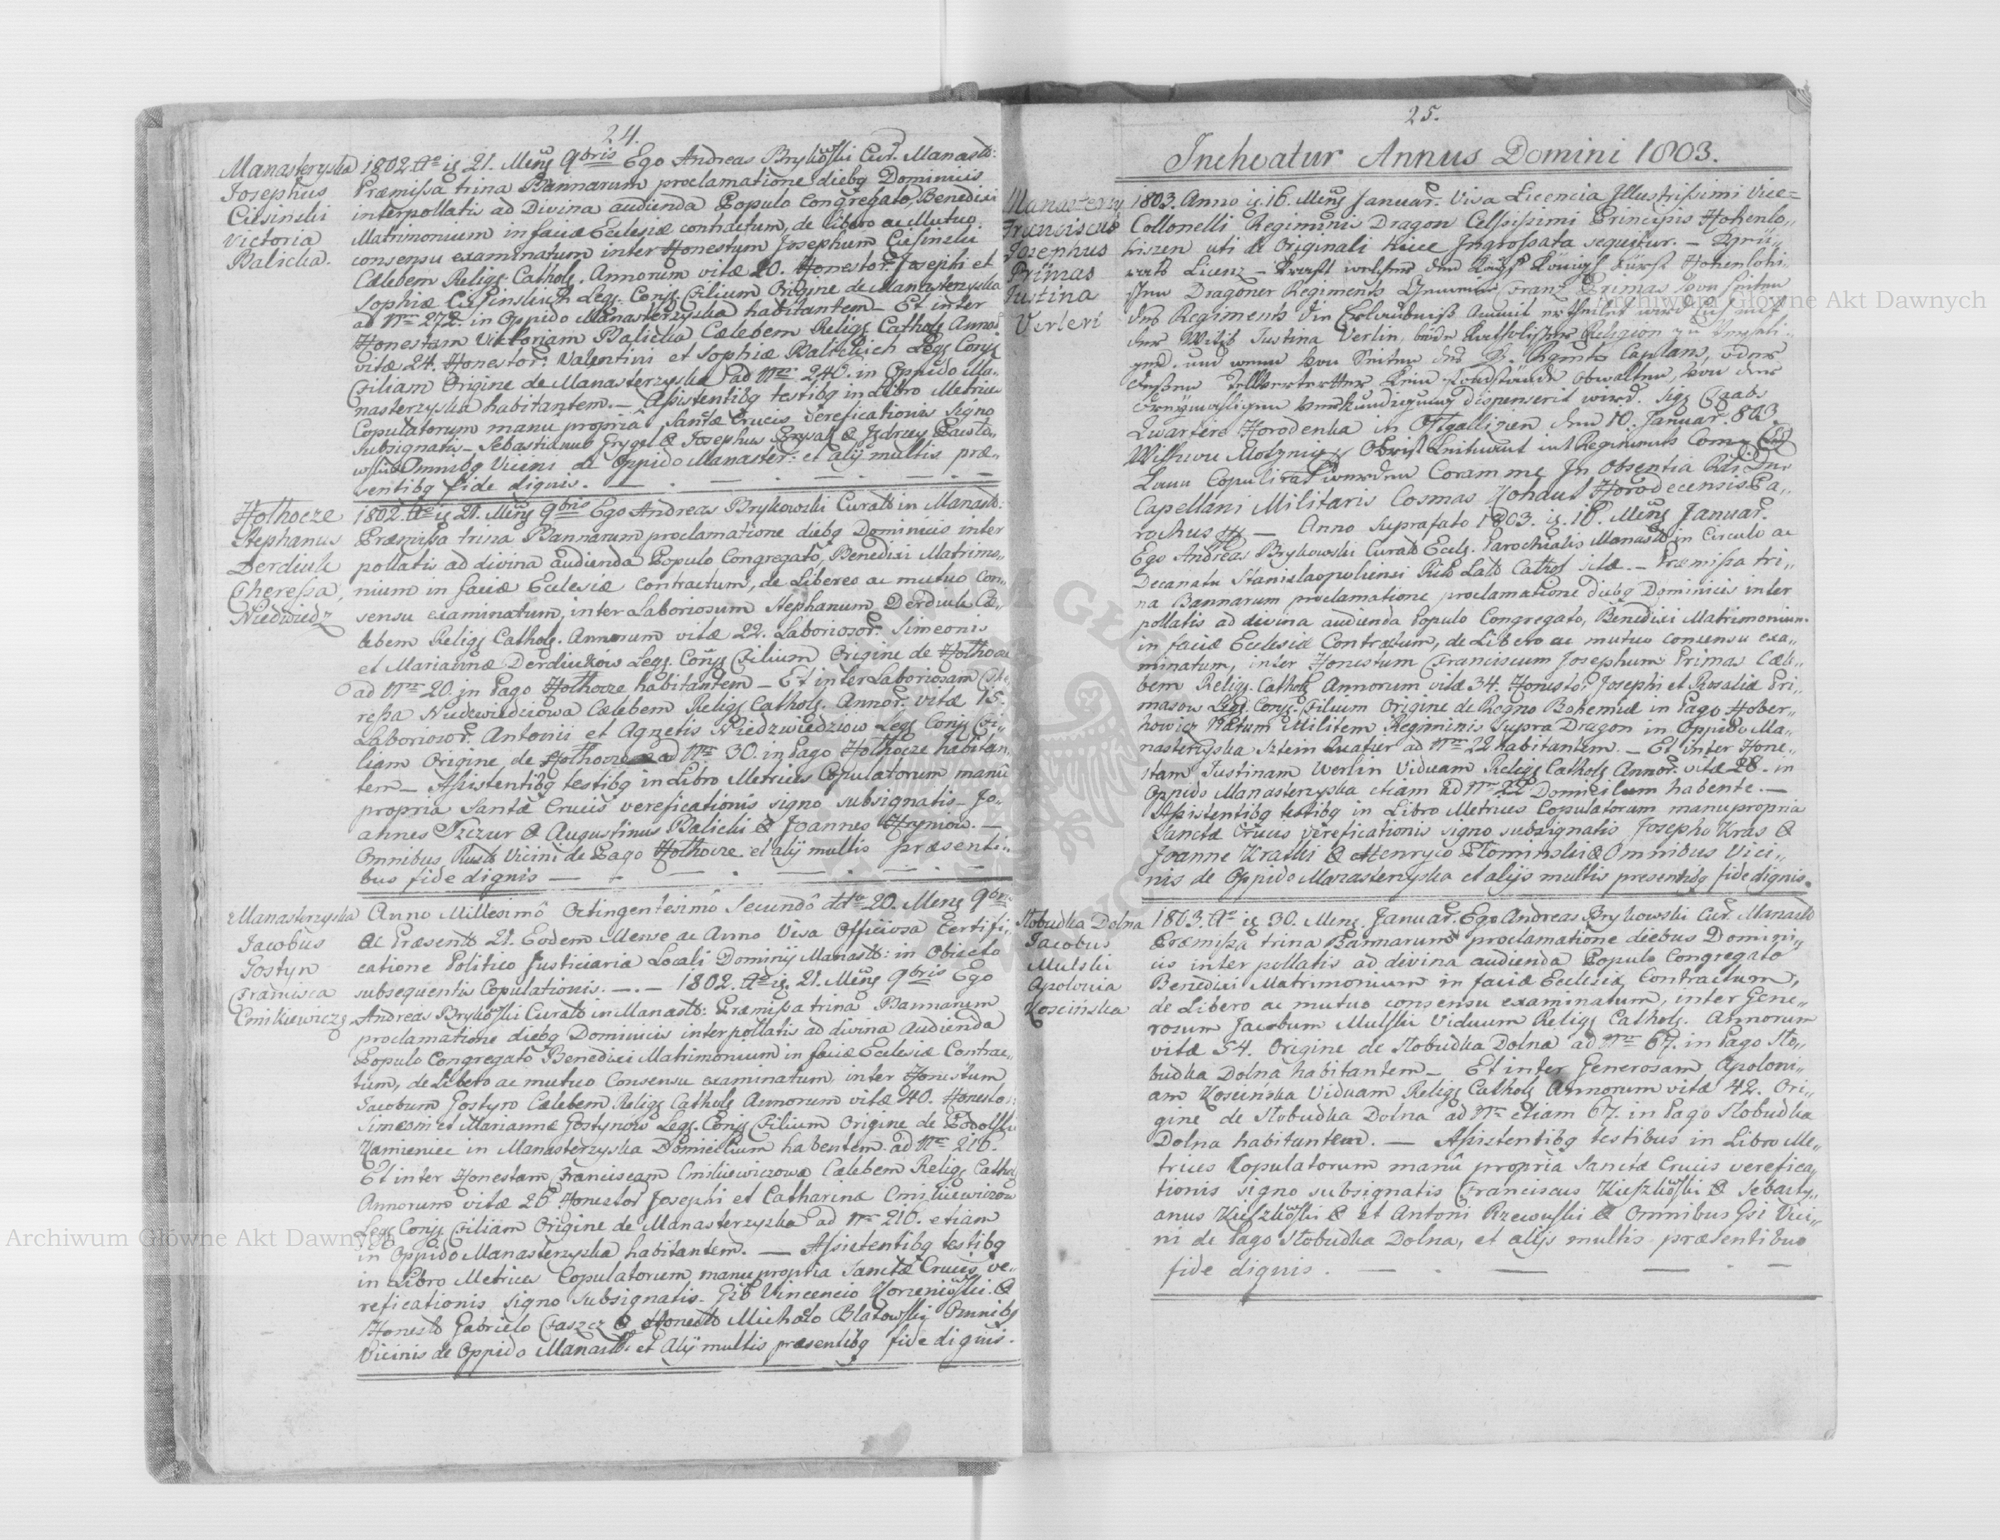 24.
Manasterzyska
Josephus
Ciesinski
Victoria
Balicka.
1802. Ao is 21. Mens 9bris Ego Andreas Brykowski Cur. Manast:
Præmissa trina Bannarum proclamatione diebq Dominicis
interpollatis ad Divina audienda Populo Congregato, Benedixi
Matrimonium in faciæ Ecclesiæ contractum, de libero ac Mutuo
consensu examinatum inter Honestum Josephum Ciesinski
Cælebem Religs Cathols. Annorum vitæ 20. Honestor. Josephi et
Sophiæ Legs Conjs Filium Origine de Manasterzyska
ad Nrm 272. in Oppido Manasterzyska habitantem – Et inter
Honestam Victoriam Balicka Cælebem Religs Cathols Annor.
vitæ 24. Honestor. Valentini et Sophiæ Legs Conjs
Filiam Origine de Manasterzyska ad Nrm 240. in Oppido Ma-
nasterzyska habitantem. – Assistentibq testibq in Libro Metrices
Copulatorum manu propria Sanctæ Crucis vereficationis signo
Subsignatis – Sebastianus Grygel & Josephus & Jędrzey
Omnibq Vicini de Oppido Manaster: et alij multis præ-
sentibq fide dignis.
Hołhocze
Stephanus
Derdiuk
Theressa
Niedwiedz
1802. Ao is 21. Mens 9bris Ego Andreas Brykowski Curato in Manast:
Præmissa trina Bannarum proclamatione diebq Dominicis inter
pollatis ad divina audienda Populo Congregato, Benedixi Matrimo-
nium in faciæ Ecclesiæ contractum, de Libereo ac mutuo con-
sensu examinatum, inter Laboriosum Stephanum Derdiuk Cæ-
lebem Religs Cathols. Annorum vitæ 22. Laboriosor. Simeonis
et Mariannæ Legs. Conjs Filium Origine de Hołhocze
ad Nrm 20. in Pago Hołhocze habitantem – Et inter Laboriosam The-
ressa Niedzwiedziowa Cælebem Religs Cathols. Annor. vitæ 15.
Laboriosor. Antonii et Agnetis Niedzwiedziow Legs Conjs Fi-
liam Origine de Hołhocze ad Nrm 30. in Pago Hołhocze habitan-
tem – Assistentibq testibq in Libro Metrices Copulatorum manû
propria Santæ Crucis vereficationis signo subsignatis – Jo-
annes & Augustinus Balicki & Joannes Hryniow. –
Omnibus Vicini de Pago Hołhocze et alij multis præsenti-
bus fide dignis –
Manasterzyska
Jacobus
Gostyn
Francisca
Cmikiewiczo
Anno Millesimô Octingentesimô Secundô dtto 20. Mens 9bris
ac Præsento 21. Eodem Mense ac Anno Visa Officiosa Certifi-
catione Politico Justiciaria Locali Dominij Manast: in Obiecto
subsequentis Copulationis. –.– 1802. Ao is 21. Mens 9bris Ego
Andreas Brykowski Curato in Manast: Præmissa trina Bannarum
proclamatione diebq Dominicis interpollatis ad divina Audienda
Populo Congregato Benedixi Matrimonium in faciæ Ecclesiæ Contrac-
tum, de Libero ac mutuo Consensu examinatum, inter Honestum
Jacobum Gostyn Cælebem Religs Cathols Annorum vitæ 40. Honesto:
Simeoni et Mariannæ Legs. Conjs Filium Origine de Podolski
Kamieniec in Manasterzyska Domicilium habentem ad Nrm 216.
Et inter Honestam Franciscam Cmikiewiczowa Cælebem Religs Cathols
Annorum vitæ 26 Honestor Josephi et Catharinæ Cmikiewiczow
Legs Conjs Filiam Origine de Manasterzyska ad Nrm 216. etiam
in Oppido Manasterzyska habitantem. – Assistentibq testibq
in Libro Metrices Copulatorum manu propria Sanctæ Crucis ve-
reficationis signo subsignatis. Vincencio Korzeniowski. &
Honesto Gabrielo & Honesto Michało Omnibq
Vicinis de Oppido Manast. et Alij multis præsentibq fide dignis.
25.
Inchoatur Annus Domini 1803.
Manasterzy
Franciscus
Josephus
Primas
Justina
Verleri
1803. Anno is 16. Mens Januar. Visa Licencia Illustrissimi Vice-
Collonelli Regiminis Dragon Celsissimi Principis Hohenlo-
uti & Originali huice Ingrossata sequitur. –
Licenz – Kraft welcher
Dragoner Regiments Franz Primas von Seiten
des Regiments die Erlaubniß
der Wittib Justina Verlin, beide Katholischer Religion zu
und wenn von Seiten des Caplan, oder
kein obwalten, von der
dispensirt wird. Sig. Staabs
Quartier Horodenka in Ostgallizien den 10. Januar. 803.
Obrist
Copulirt werden Coram me In Absentia
Capellani Militaris Cosmas Horodecensis Pa-
rochus – Anno Suprafato 1803. is 16. Mens Januar.
Ego Andreas Brykowski Curato Eccls. Parochialis Manast in Circulo ac
Decanatu Stanislaopoliensi Ritû Lato Cathol sitæ. – Præmissa tri-
na Bannarum proclamatione proclamatione diebq Dominicis inter
pollatis ad divina audienda Populo Congregato, Benedixi Matrimonium
in faciæ Ecclesiæ Contractum, de Libero ac mutuo consensu exa-
minatum, inter Honestum Franciscum Josephum Primas Cæle-
bem Religs. Cathols Annorum vitæ 34. Honestor Josephi et Rosaliæ Pri-
masow Legs Conjs. Filium Origine de Regno Bohemiæ in Pago Hober-
howicz Natum Militem Regiminis Supra Dragon in Oppido Ma-
nasterzyska Sztein Quatier ad Nrm 22 habitantem. – Et inter Hone-
stam Justinam Werlin Viduam Religs Cathols Annor. vitæ 28. in
Oppido Manasterzyska etiam ad Nrm 22 Domicilum habente. –
Assistentibq testibq in Libro Metrices Copulatorum manu propria
Sanctæ Crucis vereficationis signo subsignatis Josepho Kras &
Joanne Kraski & Henryco Płominski & Omnibus Vici-
nis de Oppido Manasterzyska et alijs multis presentibq fide dignis.
Słobudka Dolna
Jacobus
Mulski
Apolonia
Koscińska
1803. Ao is 30. Mens. Januar. Ego Andreas Brykowski Cur. Manast
Præmissa trina Bannarum proclamatione diebus Domini-
cis inter pollatis ad divina audienda Populo Congregato
Benedixi Matrimonium in faciæ Ecclesiæ Contractum,
de Libero ac mutuo consensu examinatum, inter Gene-
rosum Jacobum Mulski Viduum Religs Cathols. Annorum
vitæ 54. Origine de Słobudka Dolna ad Nrm 67. in Pago Sło-
budka Dolna habitantem – Et inter Generosam Apoloni-
am Koscińska Viduam Religs Cathols Annorum vitæ 42. Ori-
gine de Słobudka Dolna ad Nrm etiam 67. in Pago Słobudka
Dolna habitantem. – Assistentibq testibus in Libro Me-
trices Copulatorum manû propria Sanctæ Crucis verefica-
tionis signo subsignatis Franciscus Kieszkowski & Sebasty-
anus Kieszkowski & et Antoni Rzewuski & Omnibus Gsi Vici-
ni de Pago Słobudka Dolna, et alijs multis præsentibus
fide dignis.
Archiwum Główne Akt Dawnych
Archiwum Główne Akt Dawnych